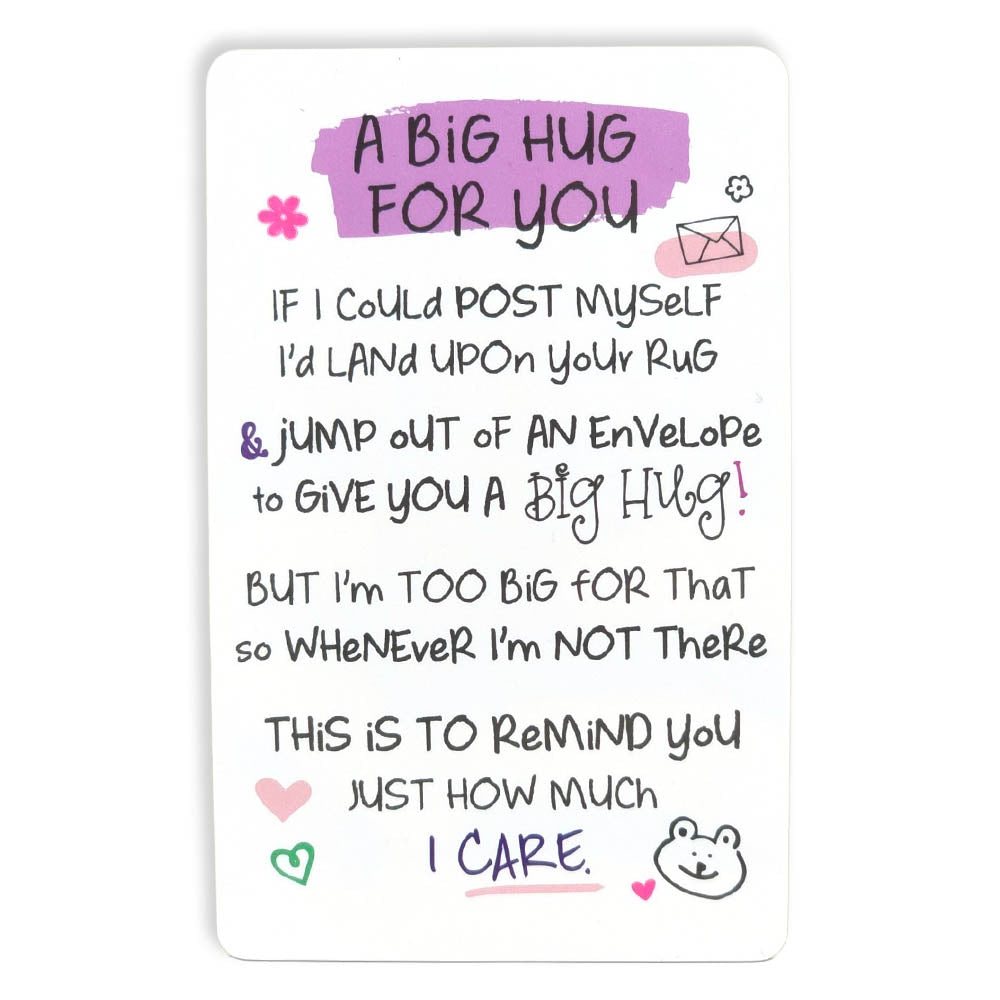 A BiG HUG
FOR YOU
IF I CoULd POST MySeLF
I'd LANd UPOn yoUr RuG
& jUMP oUT oF AN EnVeLoPe
to GiVE YOU A Big HUg!
BUT I'm TOO BiG fOR ThaT
so WHeNEveR I'm NOT TheRe
THiS iS TO ReMiND YoU
JUST HOW MUCh
I CARE.